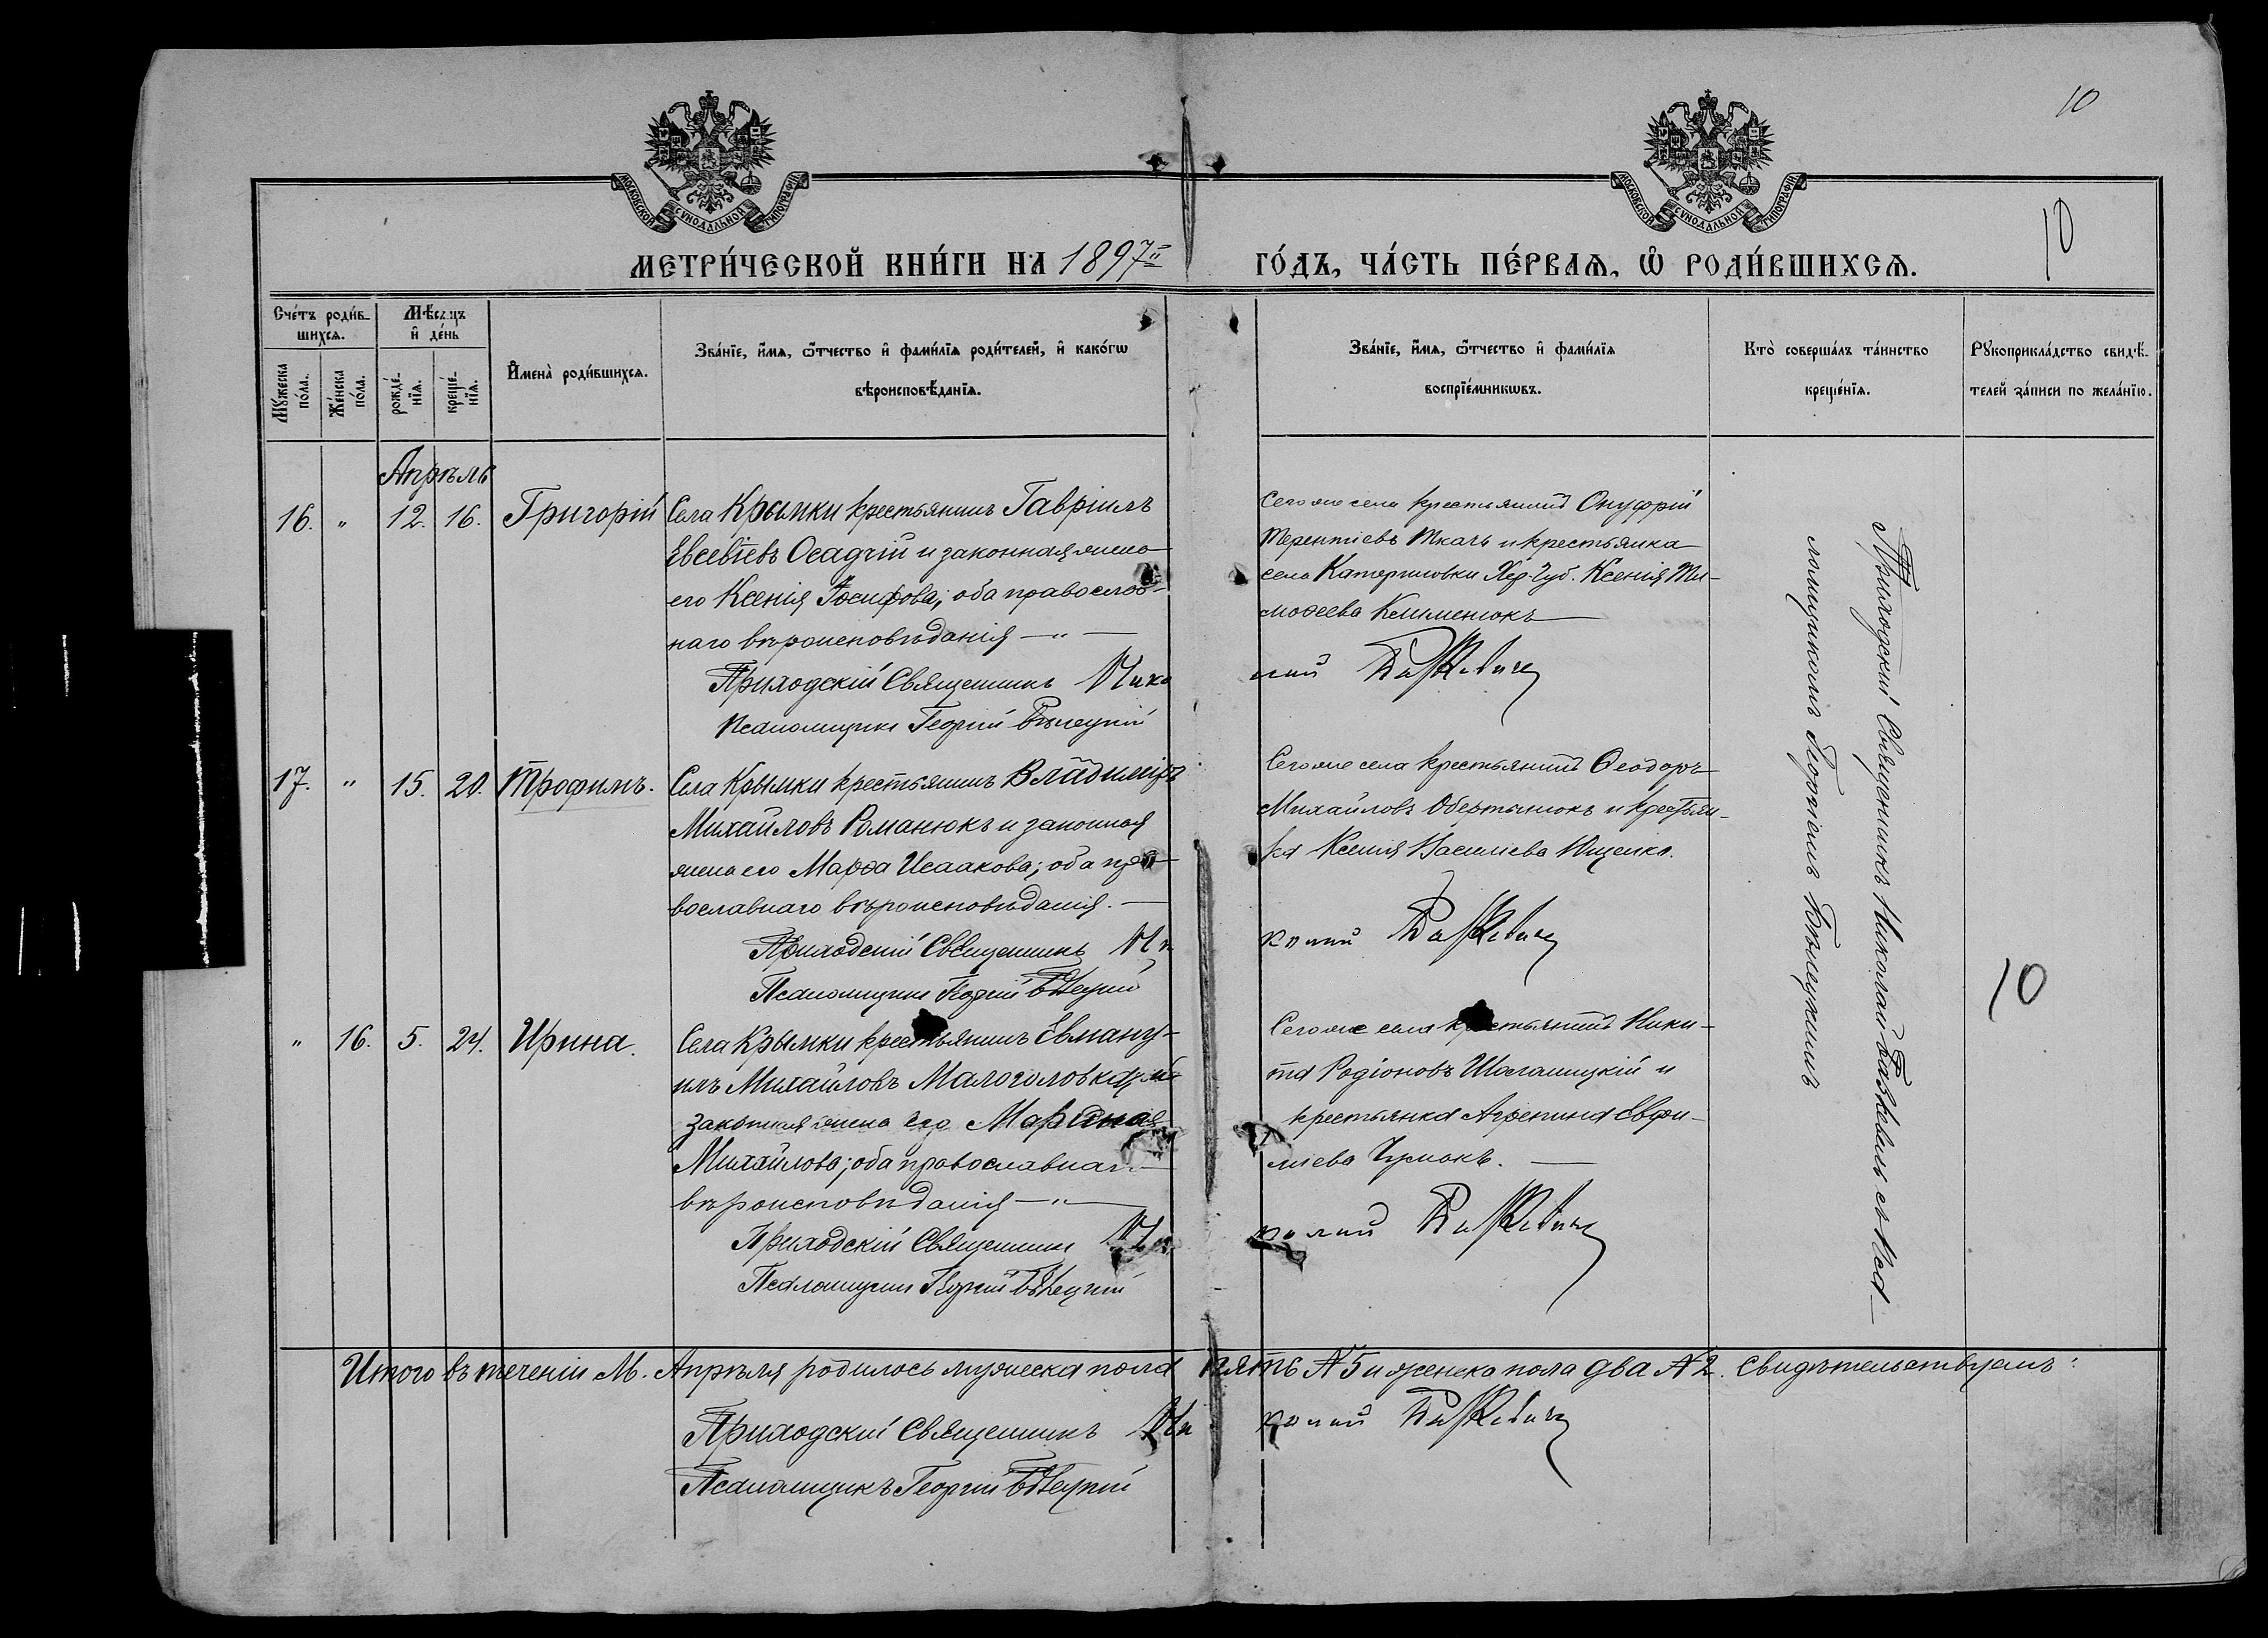 10
МОСКОВСКОЙ СѴНОДАЛЬНОЙ ТИПОГРАФІИ
МОСКОВСКОЙ СѴНОДАЛЬНОЙ ТИПОГРАФІИ
10
МЕТРИ́ЧЕСКОЙ КНИ́ГИ НА 1897й ГО́ДЪ, ЧА́СТЬ ПЕ́РВАѦ, Ѡ҆ РОДИ́ВШИХСѦ.
Сче́тъ роди́в-
шихсѧ.
Мѣ́сѧцъ
и҆ де́нь
Мꙋ́жеска
по́ла.
Же́нска
по́ла.
рожде́-
нїѧ.
креще́-
нїѧ.
И҆мена̀ роди́вшихсѧ.
Зва́нїе, и҆́мѧ, ѻ҆́тчество и҆ фами́лїѧ роди́телей, и҆ како́гѡ
вѣроисповѣ́данїѧ.
Зва́нїе, и҆́мѧ, ѻ҆́тчество и҆ фами́лїѧ
воспрїе́мникѡвъ.
Кто̀ соверша́лъ та́инство
креще́нїѧ.
Рꙋкоприкла́дство свидѣ́-
телей за́писи по жела́нїю.
Апрѣль
16. " 12. 16. Григорій
Села Крымки крестьянинъ Гавріилъ
Евсевіевъ Осадчій и законная жена
его Ксенія Іосифова; оба православ-
наго вѣроисповѣданія — " —
Приходскій Священникъ Николай Базкевичъ
Псаломщикъ Георгій Бѣлецкій
Сего же села крестьянинъ Онуфрій
Терентіевъ Ткачъ и крестьянка
села Катериновки Хер. Губ. Ксенія Ти-
моѳеева Клименюкъ
17. " 15. 20. Трофимъ.
Села Крымки крестьянинъ Владиміръ
Михайловъ Романюкъ и законная
жена его Марѳа Исаакова; оба пра-
вославнаго вѣроисповѣданія. —
Приходскій Священникъ Николай Базкевичъ
Псаломщикъ Георгій Бѣлецкій
Сего же села крестьянинъ Ѳеодоръ
Михайловъ Обертынюкъ и крестьян-
ка Ксенія Васильева Ищенко.
" 16. 5. 24. Ирина.
Села Крымки крестьянинъ Евману-
илъ Михайловъ Малоголовка и
законная жена его
Михайлова; оба православнаго
вѣроисповѣданія — " —
Приходскій Священникъ Николай Базкевичъ
Псаломщикъ Георгій Бѣлецкій
Сего же села крестьянинъ Ники-
та Родіоновъ и
крестьянка Агрепина Евфи-
міева
Приходскій Священникъ Николай Базкевичъ съ Пса-
ломщикомъ Георгіемъ Бѣлецкимъ
10
Итого въ теченіи М. Апрѣля родилось мужеска пола пять № 5 и женска пола два № 2. Свидѣтельствуемъ:
Приходскій Священникъ Николай Базкевичъ
Псаломщикъ Георгій Бѣлецкій